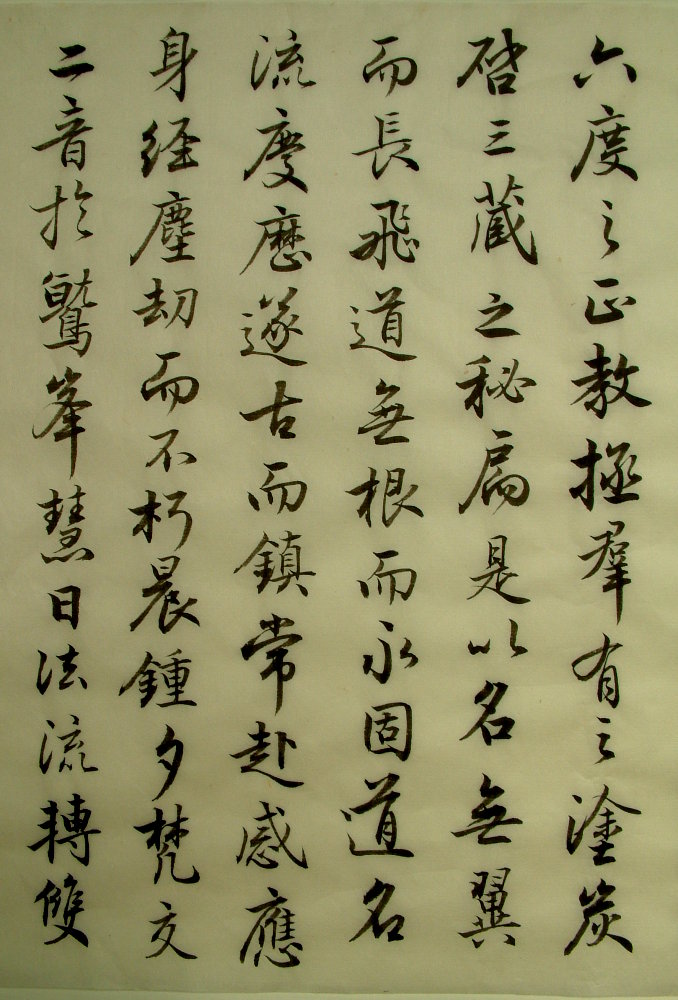 六度之正教拯羣有之塗炭
啓三藏之秘扃是以名無翼
而長飛道無根而永固道名
流慶歷遂古而鎮常赴感應
身經塵劫而不朽晨鍾夕梵交
二音於鷲峯慧日法流轉雙